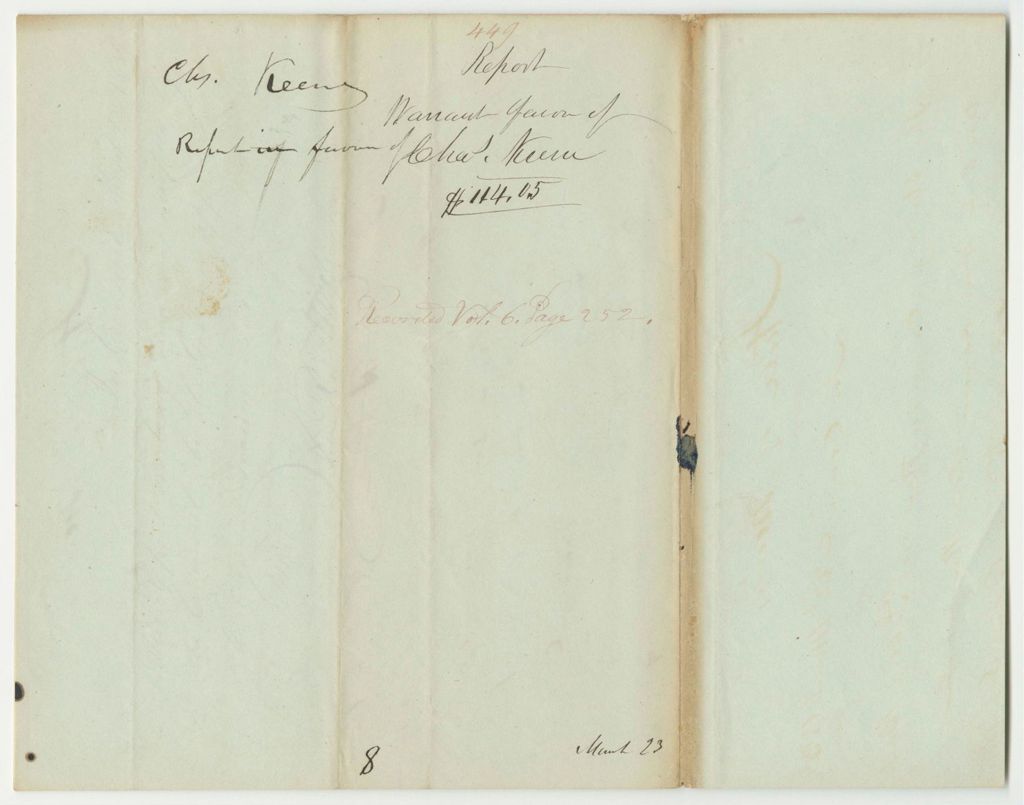 449
Report
Chs. Keene
Warrant favor of
Report in favor of Chas. Keene
$114.05
Recorded Vol. 6. Page 252.
8
March 23